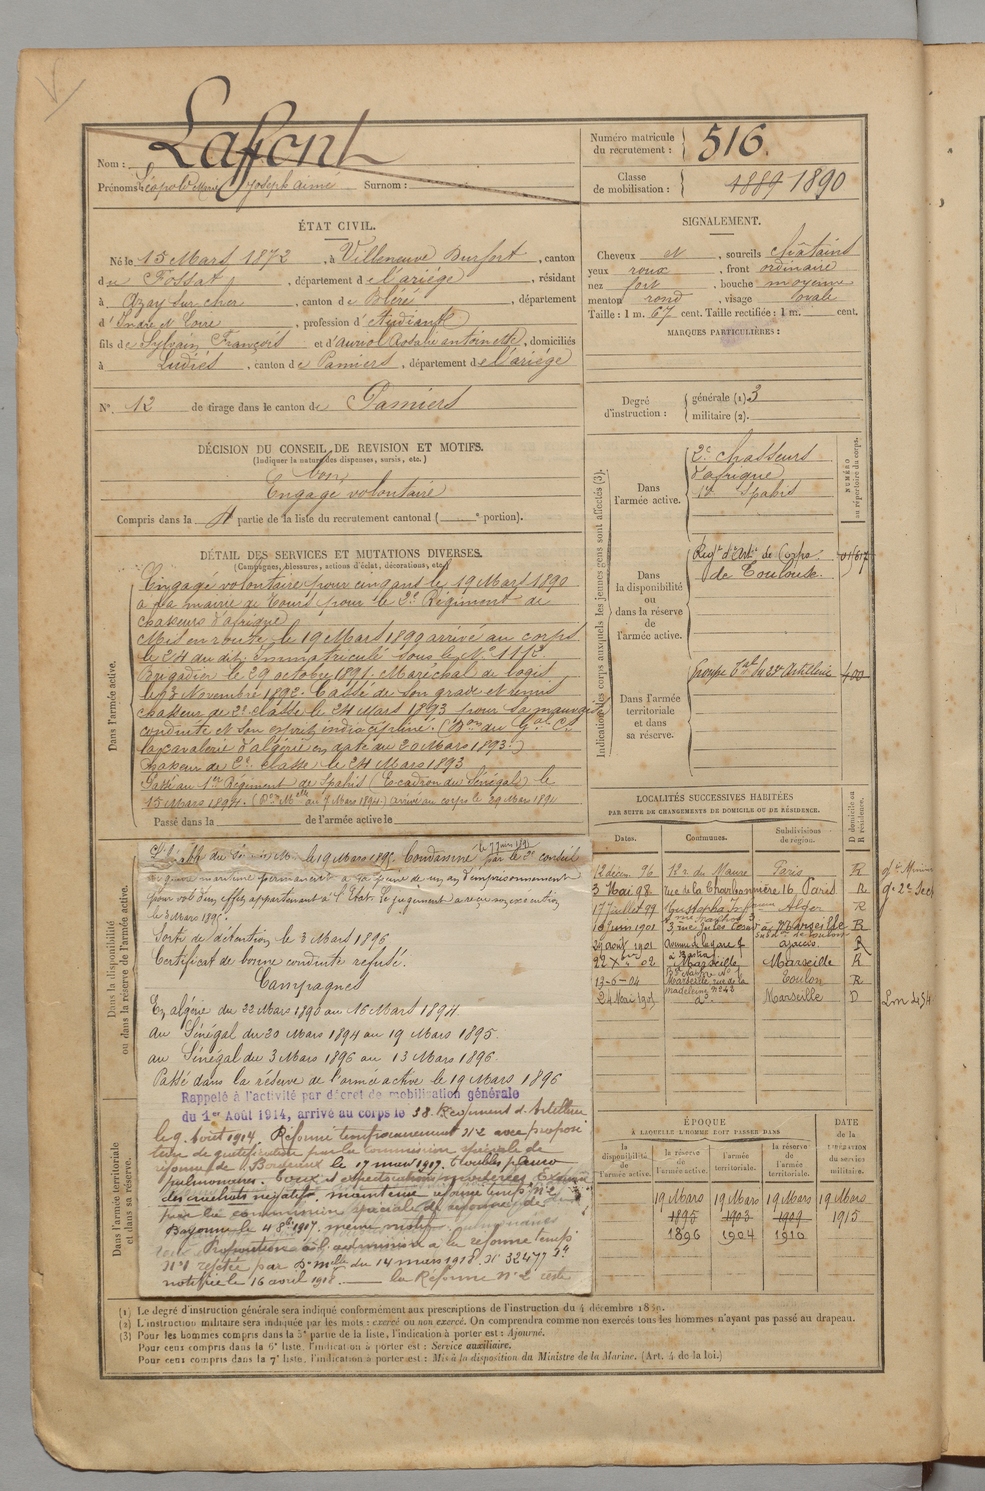 Nom : Lafont
Prénoms : Léopold Marie Joseph aimé Surnom :
Numéro matricule du recrutement : 516.
Classe de mobilisation : 1889 1890
ÉTAT CIVIL.
Né le 15 Mars 1872, à Villeneuve Durfort, canton
du Fossat, département de l'ariége, résidant
à Azay sur cher, canton de Bléré, département
d'Indre et Loire, profession d'étudiant
fils de Sylvain François et d'Auriol Rosalie antoinette, domiciliés
à Ludiés, canton de Pamiers, département de l'ariége
N°. 12 de tirage dans le canton de Pamiers
SIGNALEMENT.
Cheveux et, sourcils châtains
yeux roux, front ordinaire
nez fort, bouche moyenne
menton rond, visage ovale
Taille : 1 m. 67 cent. Taille rectifiée : 1 m. cent.
MARQUES PARTICULIÈRES :
Degré d'instruction : générale (1). 3
militaire (2).
DÉCISION DU CONSEIL DE REVISION ET MOTIFS.
(Indiquer la nature des dispenses, sursis, etc.)
bon
Engagé volontaire
Compris dans la partie de la liste du recrutement cantonal ( portion).
DÉTAIL DES SERVICES ET MUTATIONS DIVERSES.
(Campagnes, blessures, actions d'éclat, décorations, etc.)
Dans l'armée active.
Engagé volontaire pour cinq ans le 19 Mars 1890
à la mairie de Tours pour le 2e Régiment de
chasseurs d'afrique
Mis en route le 19 Mars 1890 arrivé au corps
le 24 du dit, Immatriculé sous le N° 1172
Brigadier le 29 octobre 1891. Maréchal de logis
le 3 Novembre 1892. Cassé de son grade et remis
chasseur de 2e classe le 24 Mars 1893 pour sa mauvaise
conduite et son esprit indiscipliné. (Don du Gal Ct
la cavalerie d'algérie en date du 20 Mars 1893.)
chasseur de 2e classe le 24 Mars 1893
Passé au 1er Régiment de Spahis (Escadron du Sénégal) le
15 Mars 1894. (Don Mlle du 7 Mars 1894) arrivé au corps le 29 Mars 1894
Passé dans la de l'armée active le
Dans la disponibilité ou dans la réserve de l'armée active.
le 19 Mars 1895. Condamné le 7 Juin 1895 par le 2e conseil
de guerre maritime permanent à la peine de un an d'emprisonnement
pour vol d'un effet appartenant à l'État. Le jugement a reçu son exécution
le 3 Mars 1895.
Sorti de détention le 3 Mars 1896
Certificat de bonne conduite refusé.
Campagnes
En algérie du 22 Mars 1890 au 16 Mars 1894
au Sénégal du 20 Mars 1894 au 19 Mars 1895
au Sénégal du 3 Mars 1896 au 13 Mars 1896
Passé dans la réserve de l'armée active le 19 Mars 1896
Rappelé à l'activité par décret de mobilisation générale
du 1er Août 1914, arrivé au corps le 38. Régiment d'Artillerie
Dans l'armée territoriale et dans sa réserve.
le 9 Août 1914. Réformé temporairement N°2 avec proposi
tion de gratification par la Commission spéciale de
réforme de Bordeaux le 17 mars 1917. troubles pleuro
pulmonaires. toux et expectorations modérées. Examen
des crachats négatifs. maintenu réforme temp. N°2
par la commission spéciale de réforme de
Bayonne le 4 8bre 1917. même motif.
Proposition à la réforme temp.
N°1 rejetée par Dn mlle du 14 mars 1918. N° 32477
notifiée le 16 avril 1918. la Réforme N°2 reste
Indication des corps auxquels les jeunes gens sont affectés (3).
NUMÉRO au répertoire du corps.
Dans l'armée active.
2e chasseurs
d'afrique
1er Spahis
Dans la disponibilité ou dans la réserve de l'armée active.
Régt d'Artie de Corps
de Toulouse.
Dans l'armée territoriale et dans sa réserve.
Groupe Tal du 23e Artillerie 400
LOCALITÉS SUCCESSIVES HABITÉES
PAR SUITE DE CHANGEMENTS DE DOMICILE OU DE RÉSIDENCE.
Dates. Communes. Subdivisions de région. D domicile ou R résidence.
12 décem. 96 12 r. du Maure Paris R
3 Mai 98 Rue de la Charbonnière 16 Paris R
17 juillet 99 Mustapha Alger R
10 Juin 1901 3, rue Jules Marseille R
29 août 1901 Avenue de la gare ajaccio R
22 Xbre 02 Marseille Marseille R
13-6-04 Toulon R
24 Mai 1905 do Marseille D
ÉPOQUE
À LAQUELLE L'HOMME DOIT PASSER DANS
la disponibilité de l'armée active. la réserve de l'armée active. l'armée territoriale. la réserve de l'armée territoriale.
DATE de la LIBÉRATION du service militaire.
19 Mars 19 Mars 19 Mars 19 Mars
1895 1903 1909 1915
1896 1904 1910
(1) Le degré d'instruction générale sera indiqué conformément aux prescriptions de l'instruction du 4 décembre 1889.
(2) L'instruction militaire sera indiquée par les mots : exercé ou non exercé. On comprendra comme non exercés tous les hommes n'ayant pas passé au drapeau.
(3) Pour les hommes compris dans la 5e partie de la liste, l'indication à porter est : Ajourné.
Pour ceux compris dans la 6e liste, l'indication à porter est : Service auxiliaire.
Pour ceux compris dans la 7e liste, l'indication à porter est : Mis à la disposition du Ministre de la Marine. (Art. 4 de la loi.)